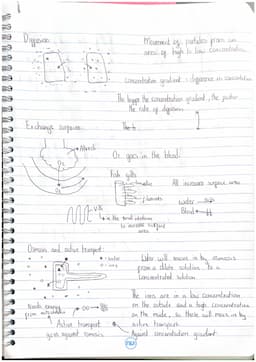 Diffusion
Movement of particles from an
area of high to low concentration
Concentration gradient : difference in concentration
The bigger the concentration gradient, the faster
the rate of diffusion
Exchange surfaces
O₂ goes in the blood.
Fish gills
All increase surface area
water
Blood
in the small intestine
to increase surface
area
Osmosis and active transport:
water
ions
Water will move in by osmosis
from a dilute solution to a
concentrated solution.
The ions are in a low concentration
on the outside and a high concentration
on the inside, so these will move in by
active transport.
Against concentration gradient.
Needs energy
from
Active transport
goes against osmosis